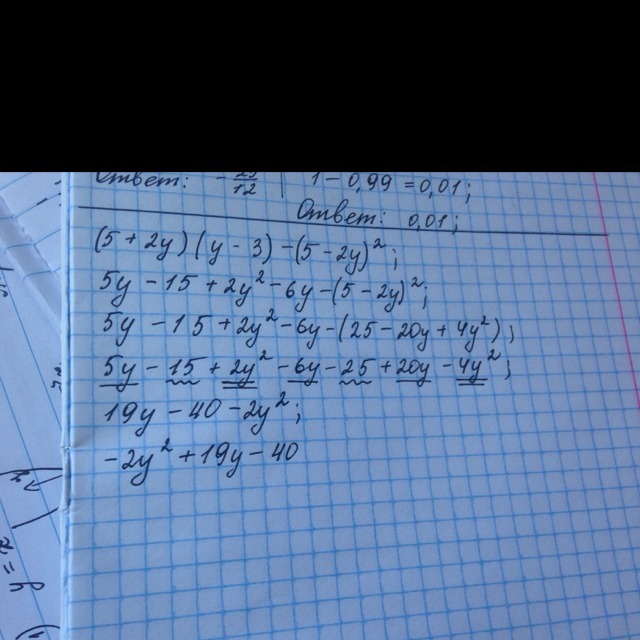 Ответ: - /12 | 1 - 0,99 = 0,01;
Ответ: 0,01;
(5 + 2y)(y - 3) - (5 - 2y)²;
5y - 15 + 2y² - 6y - (5 - 2y)²;
5y - 15 + 2y² - 6y - (25 - 20y + 4y²);
5y - 15 + 2y² - 6y - 25 + 20y - 4y²;
19y - 40 - 2y²;
-2y² + 19y - 40